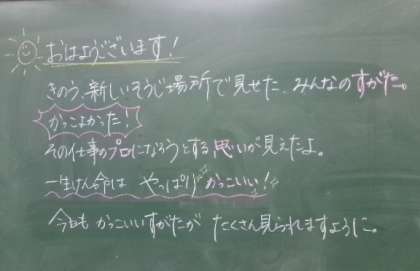 おはようございます!
きのう、新しいそうじ場所で見せた、みんなのすがた。
かっこよかった!
その仕事のプロになろうとする思いが見えたよ。
一生けん命は やっぱりかっこいい!
今日も かっこいいすがたが たくさん見られますように。